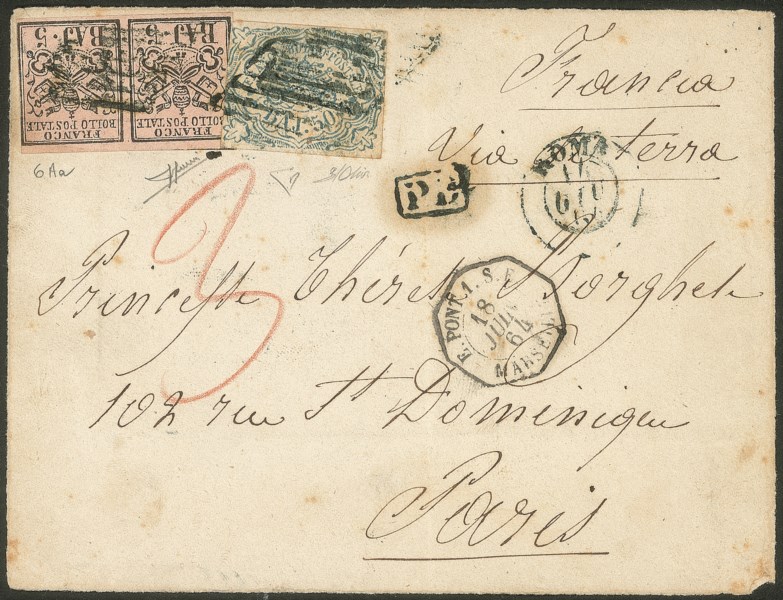 BAJ. 5 BAJ. 5
FRANCO FRANCO
BOLLO POSTALE BOLLO POSTALE
BAJ. 50
6Aa
Francia
Via di terra
ROMA
GIU
P.D.
3
Princesse Thérèse Borghese
E. PONT. 1. S. E.
18
JUIN
64
MARSEILLE
102 rue St Dominique
Paris